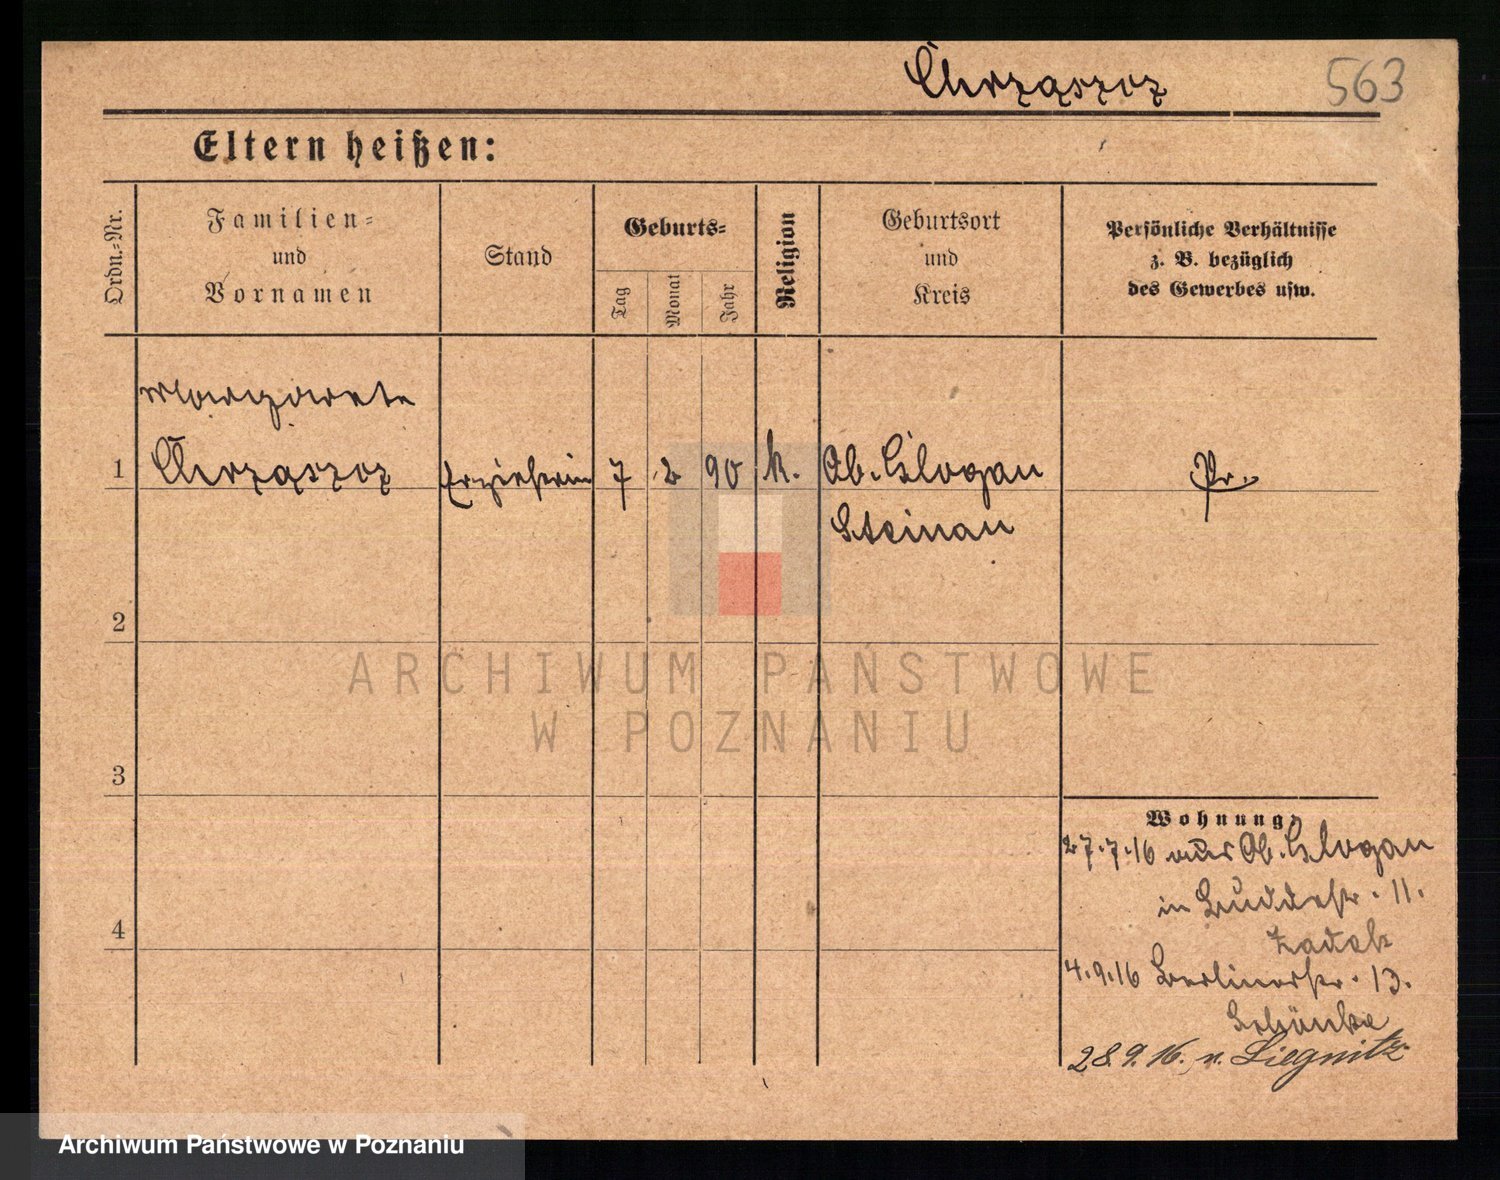 Chrząszcz
563
Eltern heißen:
Ordn.-Nr.
Familien-
und
Vornamen
Stand
Geburts-
Tag
Monat
Jahr
Religion
Geburtsort
und
Kreis
Persönliche Verhältnisse
z. B. bezüglich
des Gewerbes usw.
Margarete
1 Chrząszcz Erzieherin 7 2 90 k. Ob. Glogau Pr.
Steinau
2
3
4
Wohnung
27.7.16 aus Ob. Glogau
in Buddestr. 11.
Zadek
4.9.16 Berlinerstr. 13.
Schönke
28.9.16. n. Liegnitz
ARCHIWUM PAŃSTWOWE
W POZNANIU
Archiwum Państwowe w Poznaniu